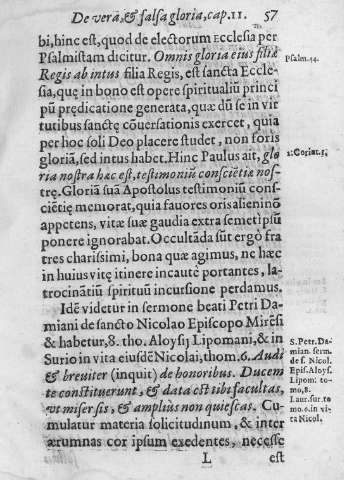 De verâ, & falsa gloria, cap. 11. 57
bi, hinc est, quod de electorum Ecclesia per
Psalmistam dicitur. Omnis gloria eius filiæ
Regis ab intus filia Regis, est sancta Eccle-
sia, quę in bono est opere spiritualiũ princi
pũ prędicatione generata, quæ dũ se in vir
tutibus sanctę cõuersationis exercet, quia
per hoc soli Deo placere studet, non foris
gloriã, sed intus habet. Hinc Paulus ait, glo
ria nostra hæc est, testimoniũ consciẽtiæ nos-
trę. Gloriã suã Apostolus testimoniũ cons-
ciẽtię memorat, quia fauores oris alieni nõ
appetens, vitæ suæ gaudia extra semetipsũ
ponere ignorabat. Occultãda sũt ergò fra
tres charissimi, bona quæ agimus, ne hæc
in huius vitę itinere incautè portantes, la-
trocinãtiũ spirituũ incursione perdamus.
Idẽ videtur in sermone beati Petri Da-
miani de sancto Nicolao Episcopo Mirẽsi
& habetur, 8. tho. Aloysij Lipomani, & in
Surio in vita eiusdẽ Nicolai, thom. 6. Audi
& breuiter (inquit) de honoribus. Ducem
te constituerunt, & data est tibi facultas,
vt miser sis, & amplius non quiescas. Cu-
mulatur materia solicitudinum, & inter
ærumnas cor ipsum exedentes, necesse
L est
Psalm. 44.
1. Corint. 1.
S. Petr. Da-
mian. serm.
de s. Nicol.
Epis. Aloys.
Lipom: to-
mo, 8.
Laur. sur. to
mo. 6. in vi
ta Nicol.